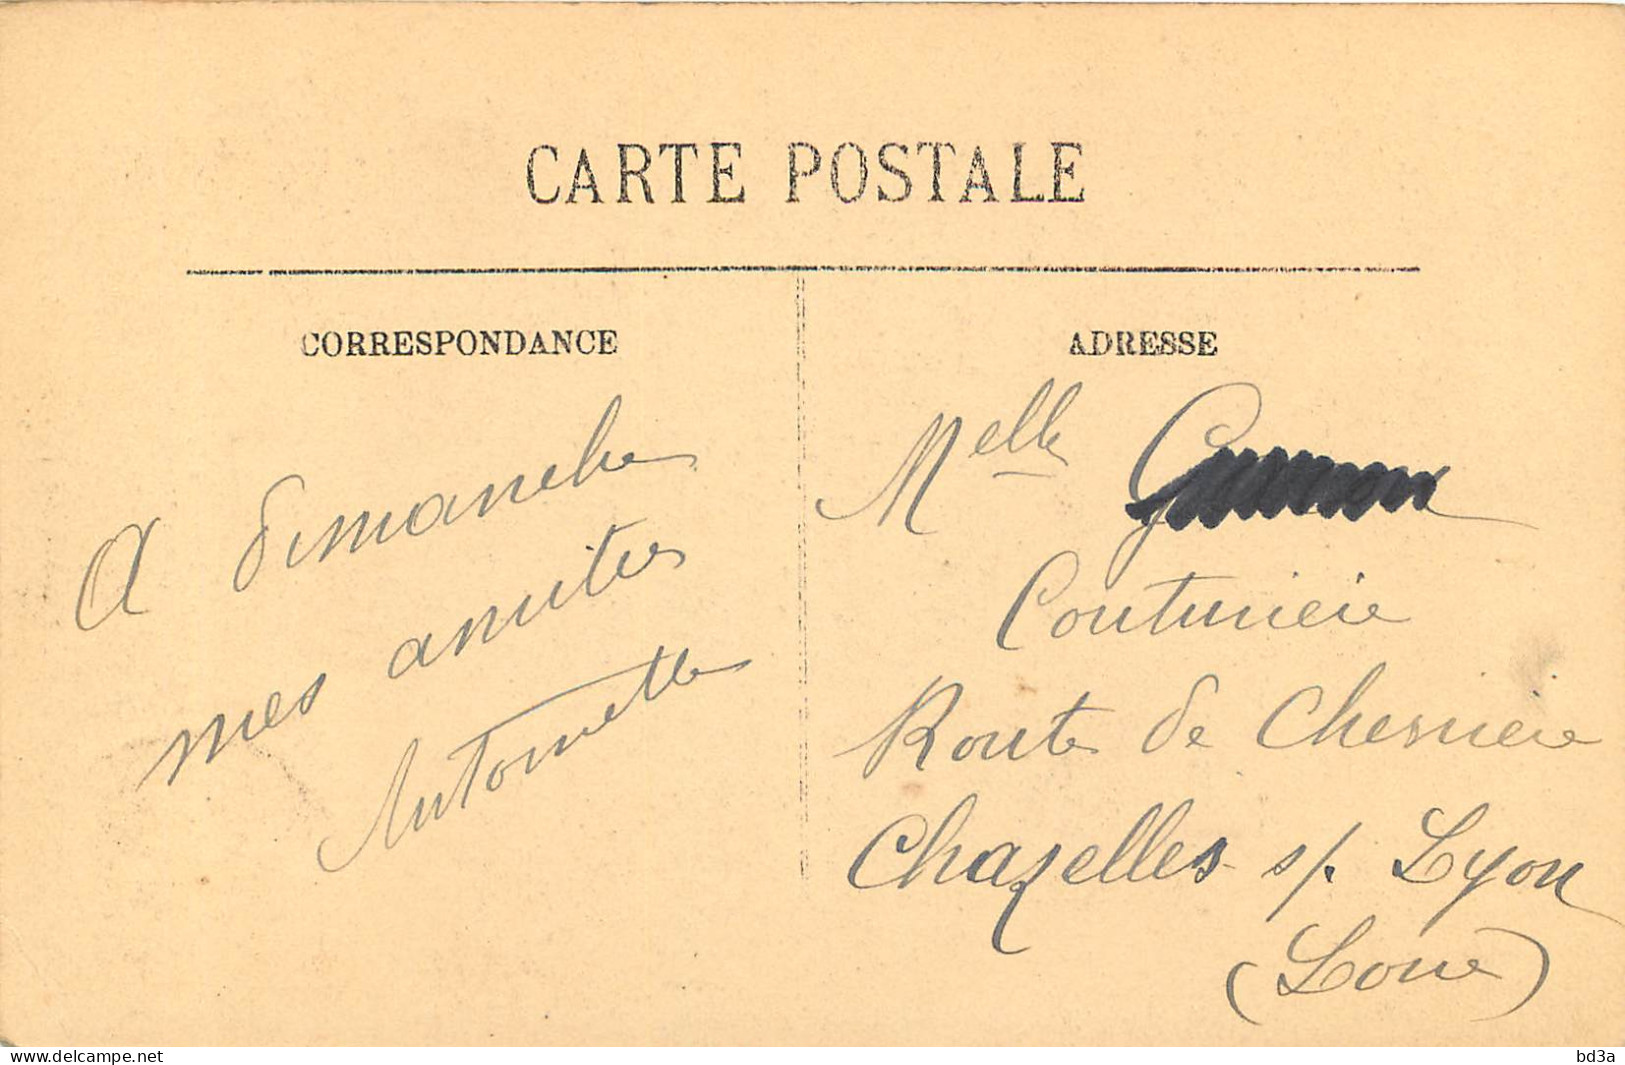 CARTE POSTALE
CORRESPONDANCE
ADRESSE
A dimanche
mes amitiés
Antoinette
Melle
Couturière
Route de Chevrière
Chazelles s/. Lyon
(Loire)
www.delcampe.net
bd3a